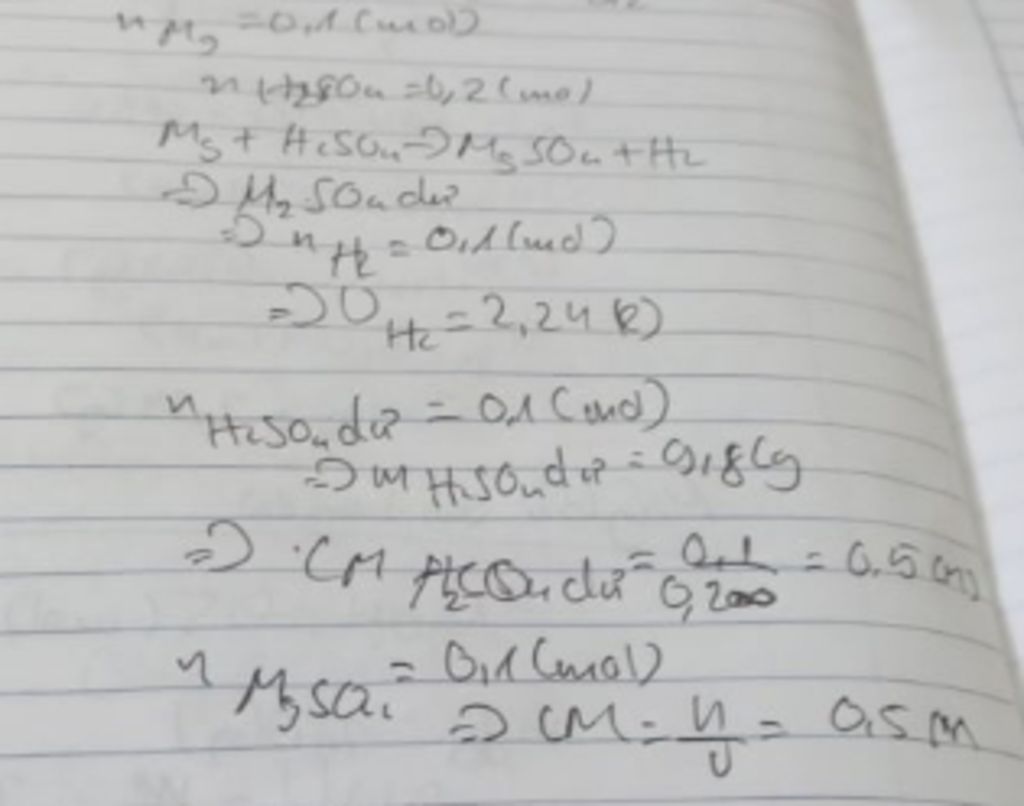 n Mg = 0,1 (mol)
n H2SO4 = 0,2 (mol)
Mg + H2SO4 → MgSO4 + H2
⇒ H2SO4 dư
⇒ n H2 = 0,1 (mol)
⇒ V H2 = 2,24 (l)
n H2SO4 dư = 0,1 (mol)
⇒ m H2SO4 dư = 9,8 (g
⇒ CM H2SO4 dư = 0,1 / 0,200 = 0,5 (M)
n MgSO4 = 0,1 (mol)
⇒ CM = n / V = 0,5 M